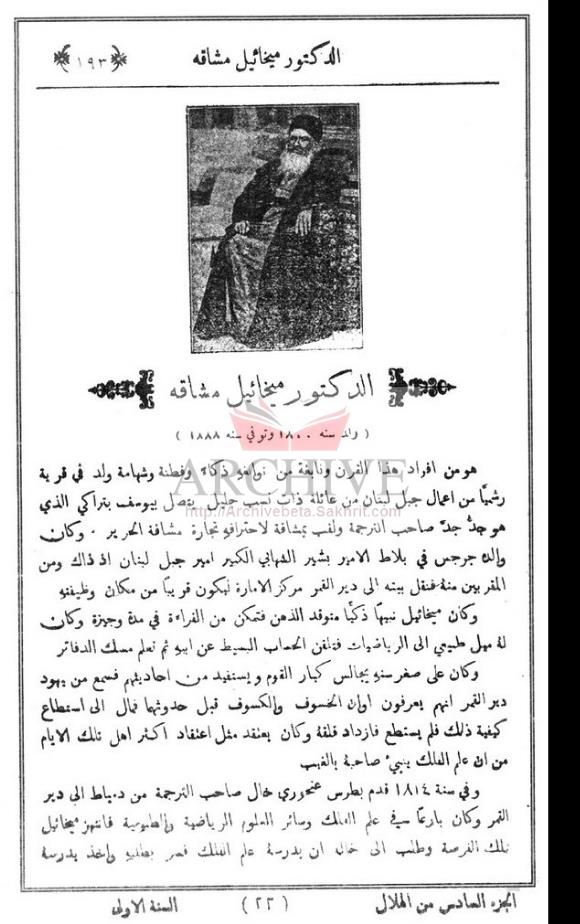 الدكتور ميخائيل مشاقه
﴿١٩٣﴾
الدكتور ميخائيل مشاقه
( ولد سنه ١٨٠٠ وتوفي سنه ١٨٨٨ )
ARCHIVE
http://Archivebeta.Sakhrit.com
هو من افراد هذا القرن ونابغة من نوابغه ذكاء وفطنة وشهامة ولد في قرية
رشميا من اعمال جبل لبنان من عائلة ذات نسب جليل يتصل بيوسف بتراكي الذي
هو جدُّ جدّ صاحب الترجمة ولقب بمشاقة لاحترافه تجارة مشاقة الحرير . وكان
والده جرجس في بلاط الامير بشير الشهابي الكبير امير جبل لبنان اذ ذاك ومن
المقربين منهُ فنقل بيته الى دير القمر مركز الامارة ليكون قريبًا من مكان وظيفته
وكان ميخائيل نبيهًا ذكيًا متوقد الذهن فتمكن من القراءة في مدة وجيزة وكان
لهُ ميل طبيعي الى الرياضيات فتلقن الحساب البسيط عن ابيه ثم تعلم مسك الدفاتر
وكان على صغر سنه يجالس كبار القوم ويستفيد من احاديثهم فسمع من يهود
دير القمر انهم يعرفون اوان الخسوف والكسوف قبل حدوثها فمال الى استطلاع
كيفية ذلك فلم يستطع فازداد قلقهُ وكان يعتقد مثل اعتقاد اكثر اهل تلك الايام
من ان علم الفلك ينبيء صاحبهُ بالغيب
وفي سنة ١٨١٤ قدم بطرس عنحوري خال صاحب الترجمة من دمياط الى دير
القمر وكان بارعًا في علم الفلك وسائر العلوم الرياضية والطبيعية فانتهز ميخائيل
تلك الفرصة وطلب الى خاله ان يدرسهُ علم الفلك فسر بطلبه واخذ يدرسهُ
الجزء السادس من الهلال
( ٢٢ )
السنة الاولى